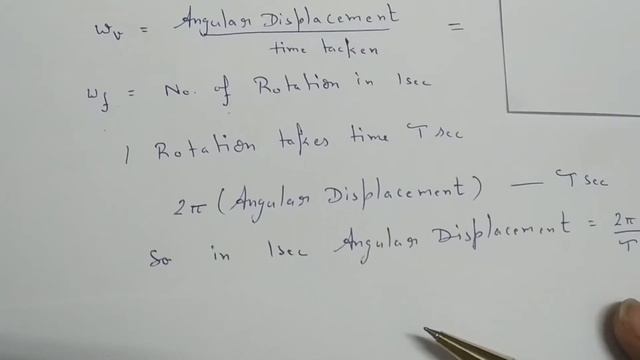 ω_v = Angular Displacement / time tacken =
ω_f = No. of Rotation in 1sec
1 Rotation takes time T sec
2π (Angular Displacement) — T sec
So in 1sec Angular Displacement = 2π / T